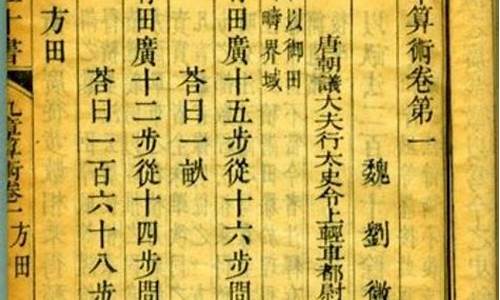 算術卷第一
魏劉徽
唐朝議大夫行太史令上輕車都尉
以御田
疇界域
田廣十五步從十六步問
荅曰一畝
有田廣十二步從十四步問
荅曰一百六十八步
方田
十書
九章算術卷一
方田